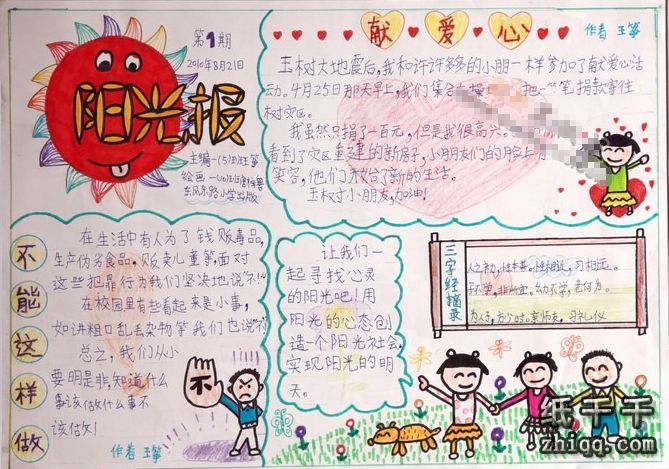 第1期
2010年8月21日
阳光报
主编一(5)班王筝
东风东路小学出版
献爱心
作者 王筝
玉树大地震后,我和许许多多的小朋一样参加了献爱心活
动。4月25日那天早上,我们集合
把一笔笔捐款寄往
树灾区。
我虽然只捐了一百元,但是我很高兴。
看到了灾区重建的新房子,小朋友们的脸上
笑容,他们开始了新的生活。
玉树小朋友,加油!
不能这样做
在生活中有人为了钱贩毒品,
生产伪劣食品,贩卖儿童等,面对
这些犯罪行为我们坚决地说“不!”
在校园里有些看起来是小事,
如讲粗口乱丢杂物等我们也说“不”
总之,我们从小
要明是非,知道什么
事该做什么事不
该做!
作者 王筝
不
让我们一
起寻找心灵
的阳光吧!用
阳光的心态创
造一个阳光社会,
实现阳光的明
天。
三字经摘录
人之初,性本善。性相近,习相远。
子不学,非所宜,幼不学,老何为。
为人子,方少时。亲师友,习礼仪
纸千千
zhiqq.com